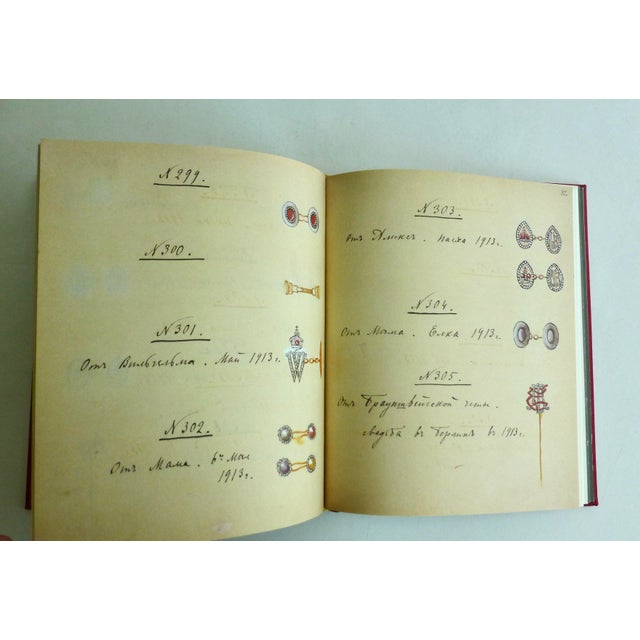 N 299.
N 300.
N 301.
Отъ Вильгельма. Май 1913 г.
N 302.
Отъ Мама. 6го Мая
1913 г.
N 303.
Отъ Аликсъ. Пасха 1913 г.
N 304.
Отъ Мама. Ёлка 1913 г.
N 305.
Отъ Брауншвейгской четы.
свадьба въ Берлинѣ въ 1913 г.